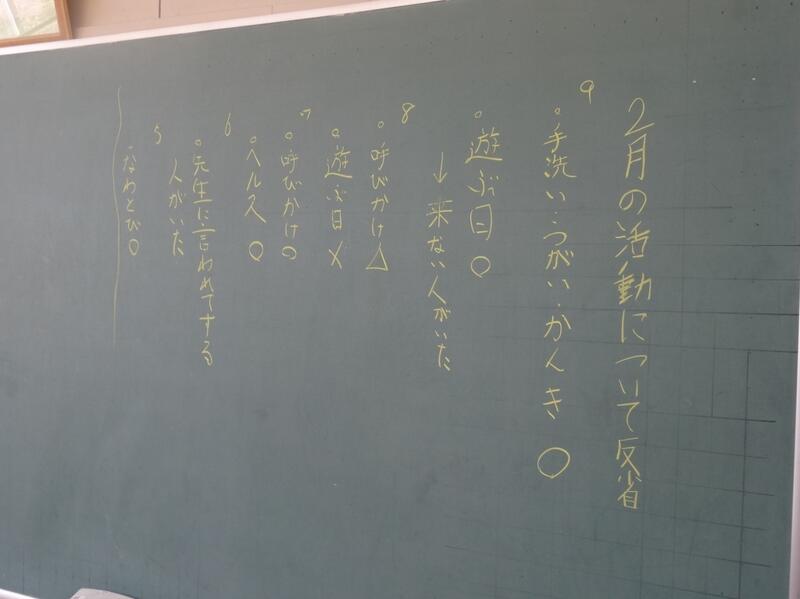 2月の活動について反省
9
。手洗い・うがい・かんき ○
。遊ぶ日○
↓来ない人がいた
8
。呼びかけ△
。遊ぶ日×
7
。呼びかけの
。ヘルス○
6
。先生に言われてする
人がいた
5
なわとび○